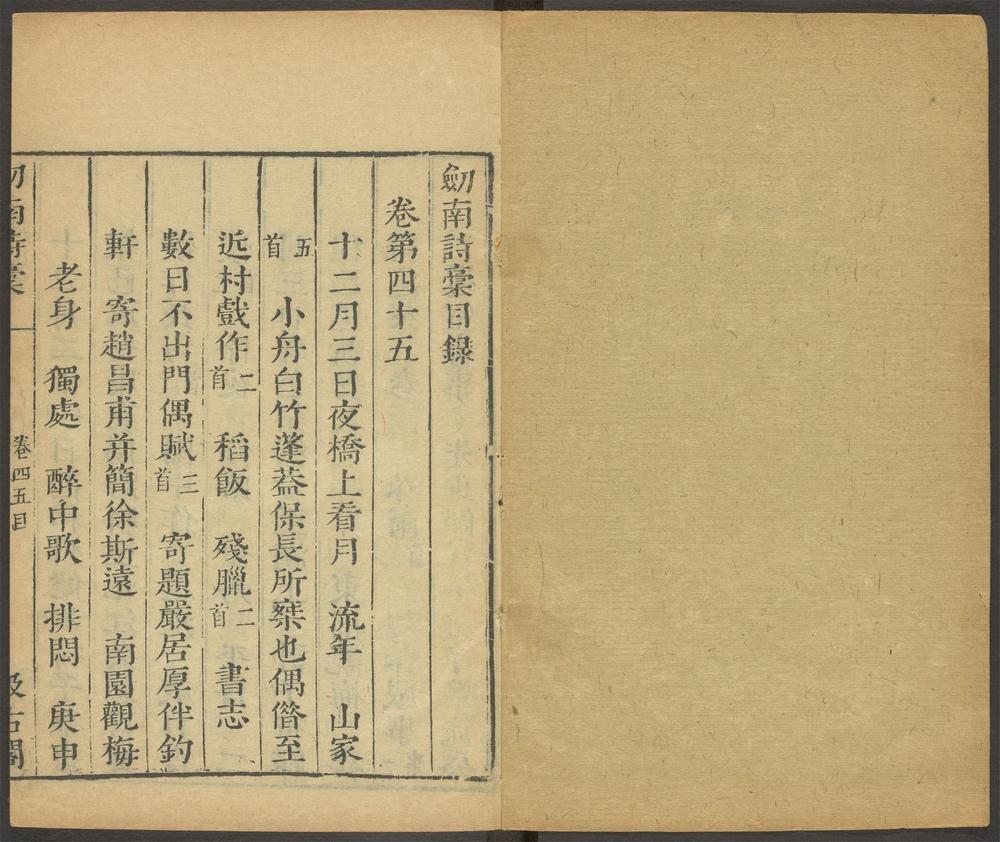 劒南詩稾目錄
卷第四十五
十二月三日夜橋上看月 流年 山家
五首 小舟白竹蓬葢保長所㮈也偶借至
近村戲作二首 稻飯 殘臘二首 書志
數日不出門偶賦三首 寄題嚴居厚伴釣
軒 寄趙昌甫并簡徐斯遠 南園觀梅
老身 獨處 醉中歌 排悶 庚申
劒南詩稾
卷四五目
汲古閣